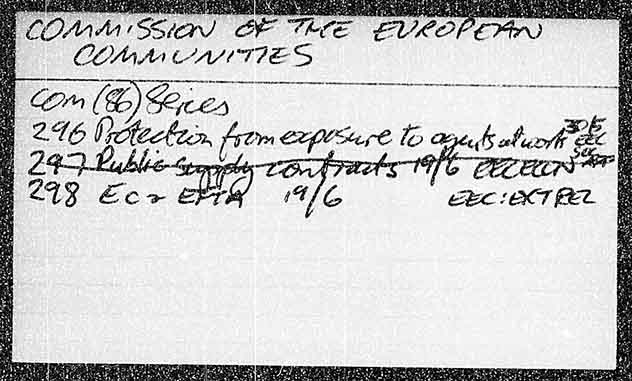 COMMISSION OF THE EUROPEAN
COMMUNITIES
COM (86) Series
296 Protection from exposure to agents at work 30/5 EEC SOC
297 Public supply contracts 19/6 EEC ECON
298 EC & EFTA 19/6 EEC: EXT REL